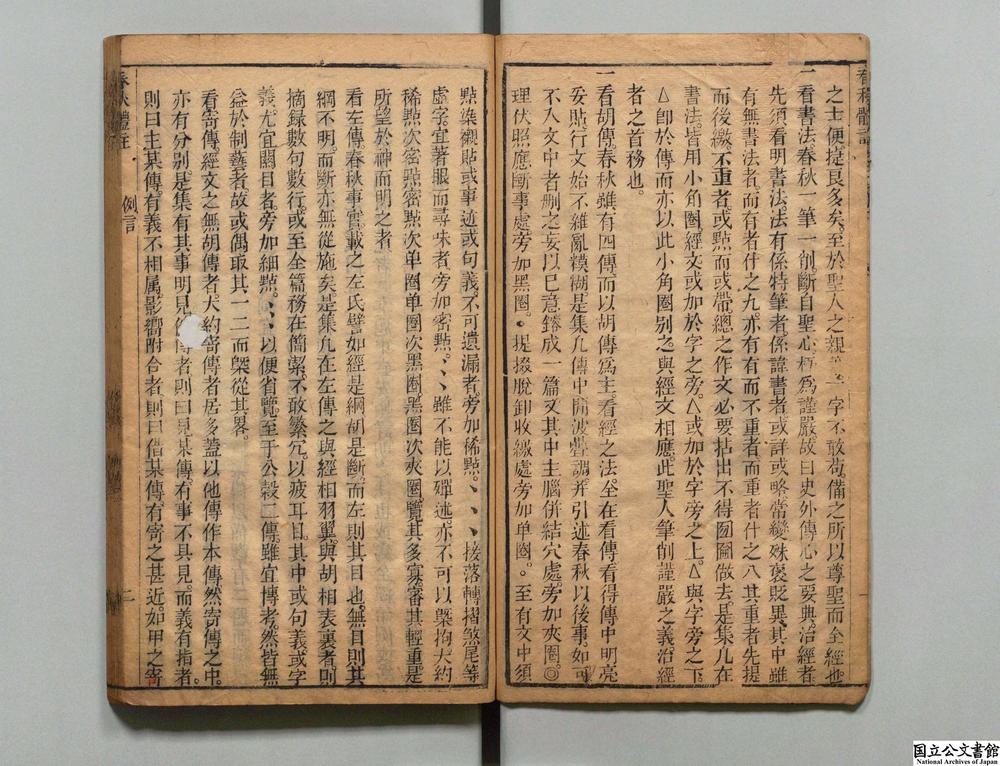 之士便捷良多矣至於聖人之之親一字不敢苟備之所以尊聖而全經也
一看書法春秋一筆一削斷自聖心極爲謹嚴故曰史外傳心之要典治經者
先須看明書法法有係特筆者係諱書者或詳或略常變殊褒貶異其中雖
有無書法者而有者什之九亦有有而不重者而重者什之八其重者先提
而後繳不重者或點而或帶總之作文必要拈出不得囫圇做去是集凡在
書法皆用小角圈經文或加於字之旁△或加於字旁之上△與字旁之下
△卽於傳而亦以此小角圈别之與經文相應此聖人筆削謹嚴之義治經
者之首務也
一看胡傳春秋雖有四傳而以胡傳爲主看經之法全在看傳看得傳中明亮
妥貼行文始不雜亂糢糊是集凡傳中閒波疊調并引述春秋以後事如可
不入文中者删之妄以巳意鎔成一篇文其中主腦併結穴處旁加夾圈◎
理伏照應斷事處旁加黑圈●提掇脫卸收繳處旁加单圈○至有文中須
點染襯貼或事迹或句義不可遺漏者旁加稀點、、、接落轉摺煞尾等
虛字宜著眼而尋味者旁加密點、、、雖不能以殫述亦不可以槩拘大約
稀點次密點密點次单圈单圈次黑圈黑圈次夾圈覽其多寡審其輕重是
所望於神而明之者
看左傳春秋事實載之左氏譬如經是綱胡是斷而左則其目也無目則其
綱不明而斷亦無從施矣是集凡在左傳之與經相羽翼與胡相表裏者則
摘録數句數行或至全篇務在簡潔不敢繁冗以疲耳目其中或句義或字
義尤宜關目者旁加細點、、、以便省覽至于公穀二傳雖宜博考然皆無
益於制藝者故或偶取其一二而槩從其畧
看寄傳經文之無胡傳者大約寄傳者居多蓋以他傳作本傳然寄傳之中
亦有分别是集有其事明見傳者則曰見某傳有事不具見而義有指者
則曰主某傳有義不相属影嚮附合者則曰借某傳有寄之甚近如甲之寄
春秋體註
例言
二
国立公文書館
National Archives of Japan